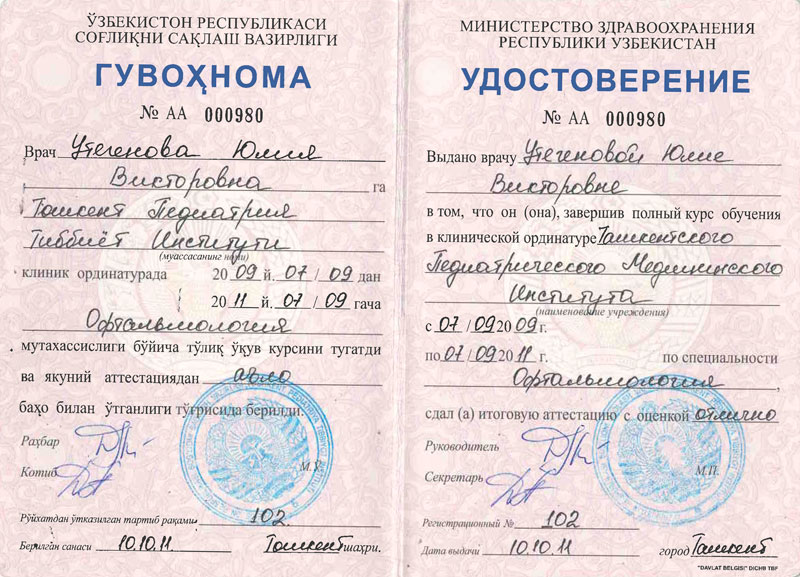 ЎЗБЕКИСТОН РЕСПУБЛИКАСИ
СОҒЛИҚНИ САҚЛАШ ВАЗИРЛИГИ
ГУВОҲНОМА
№ АА 000980
Врач Утегенова Юлия
Викторовна га
Тошкент Педиатрия
Тиббиёт Институти
(муассасанинг номи)
клиник ординатурада 2009 й. 07 / 09 дан
2011 й. 07 / 09 гача
Офтальмология
мутахассислиги бўйича тўлиқ ўқув курсини тугатди
ва якуний аттестациядан аъло
баҳо билан ўтганлиги тўғрисида берилди.
Раҳбар
Котиб
М.Ў.
Рўйхатдан ўтказилган тартиб рақами 102
Берилган санаси 10.10.11 Тошкент шаҳри.
МИНИСТЕРСТВО ЗДРАВООХРАНЕНИЯ
РЕСПУБЛИКИ УЗБЕКИСТАН
УДОСТОВЕРЕНИЕ
№ АА 000980
Выдано врачу Утегеновой Юлие
Викторовне
в том, что он (она), завершив полный курс обучения
в клинической ординатуре Ташкентского
Педиатрического Медицинского
Института
(наименование учреждения)
с 07 / 09 2009 г.
по 07 / 09 2011 г. по специальности
Офтальмология,
сдал (а) итоговую аттестацию с оценкой отлично
Руководитель
Секретарь
М.П.
Регистрационный № 102
Дата выдачи 10.10.11 город Ташкент
"DAVLAT BELGISI" DICHB TBF